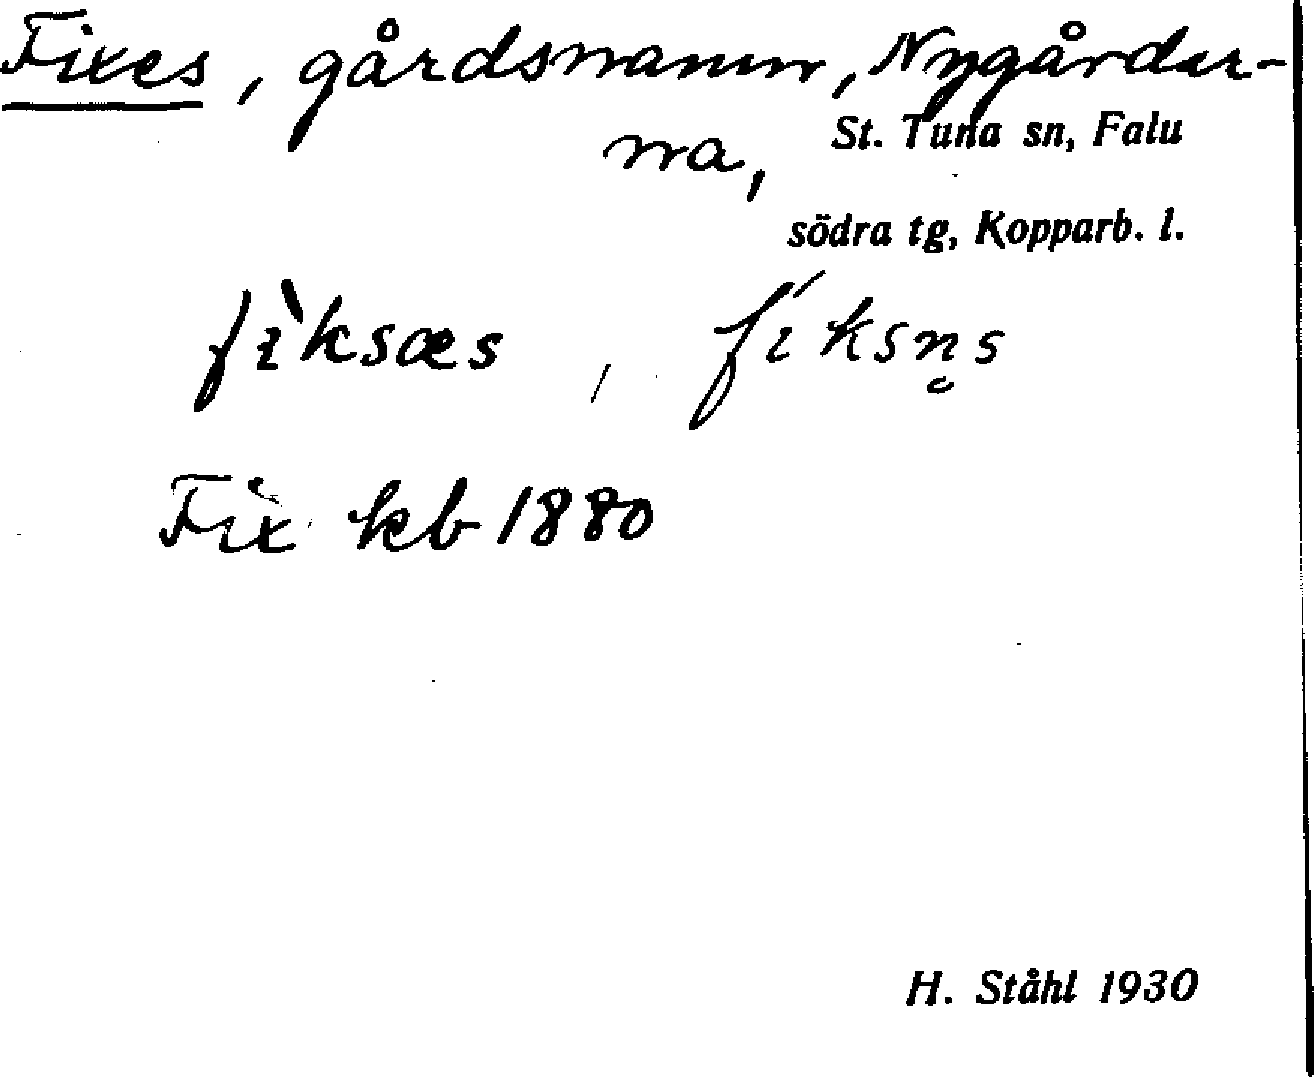 Fixes, gårdsnamn, Nygårdar-
na, St. Tuna sn, Falu
södra tg, Kopparb. l.
fi`ksæs, fi´ksn̥s
Fix kb 1880
H. Ståhl 1930